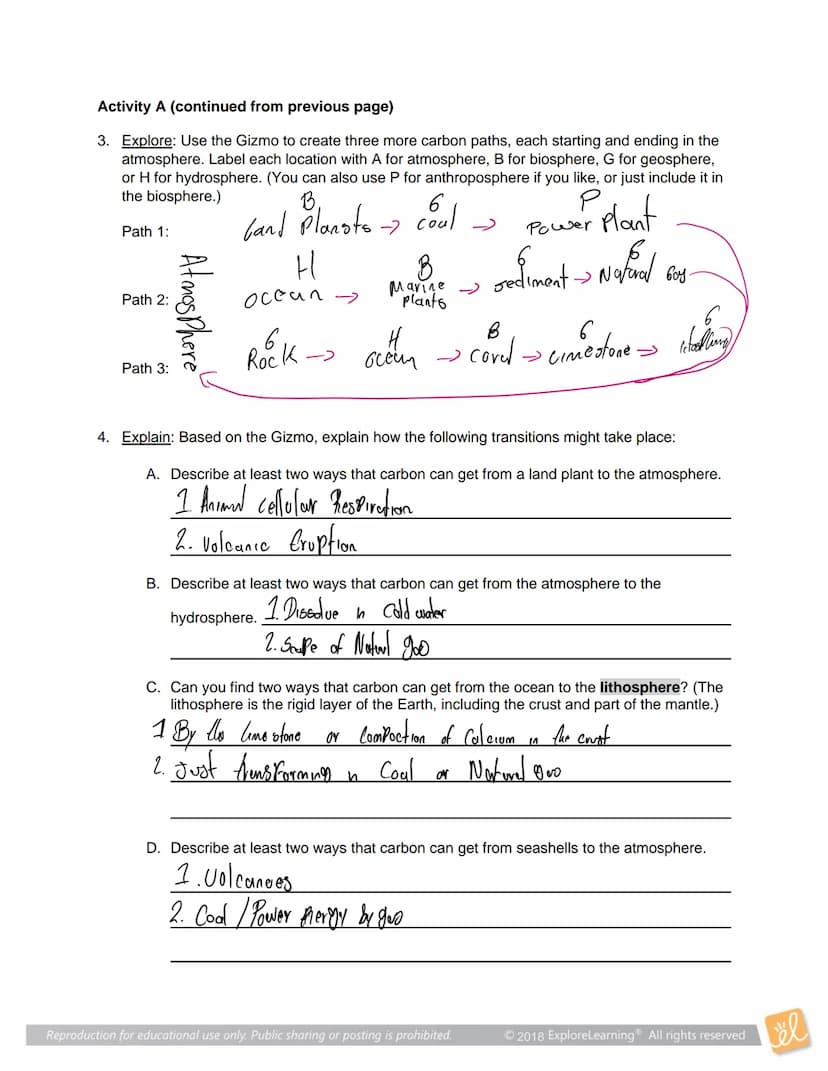 Activity A (continued from previous page)
3. Explore: Use the Gizmo to create three more carbon paths, each starting and ending in the
atmosphere. Label each location with A for atmosphere, B for biosphere, G for geosphere,
or H for hydrosphere. (You can also use P for anthroposphere if you like, or just include it in
the biosphere.)
B G P
Path 1: Land Planots → Coal → Power Plant
H B G G
Path 2: ocean → Marine plants → sediment → Natural gas
Atmosphere
G H B G G
Path 3: Rock → ocean → coral → Limestone →
4. Explain: Based on the Gizmo, explain how the following transitions might take place:
A. Describe at least two ways that carbon can get from a land plant to the atmosphere.
1 Animal cellular Respiration
2. Volcanic Eruption
B. Describe at least two ways that carbon can get from the atmosphere to the
hydrosphere. 1. Dissolve in Cold water
2. of Natural gas
C. Can you find two ways that carbon can get from the ocean to the lithosphere? (The
lithosphere is the rigid layer of the Earth, including the crust and part of the mantle.)
1 By the limestone or Compaction of Calcium in the crust
2. Just transforming in Coal or Natural gas
D. Describe at least two ways that carbon can get from seashells to the atmosphere.
1. Volcanoes
2. Coal / Power energy by gas
Reproduction for educational use only. Public sharing or posting is prohibited. © 2018 ExploreLearning® All rights reserved
el